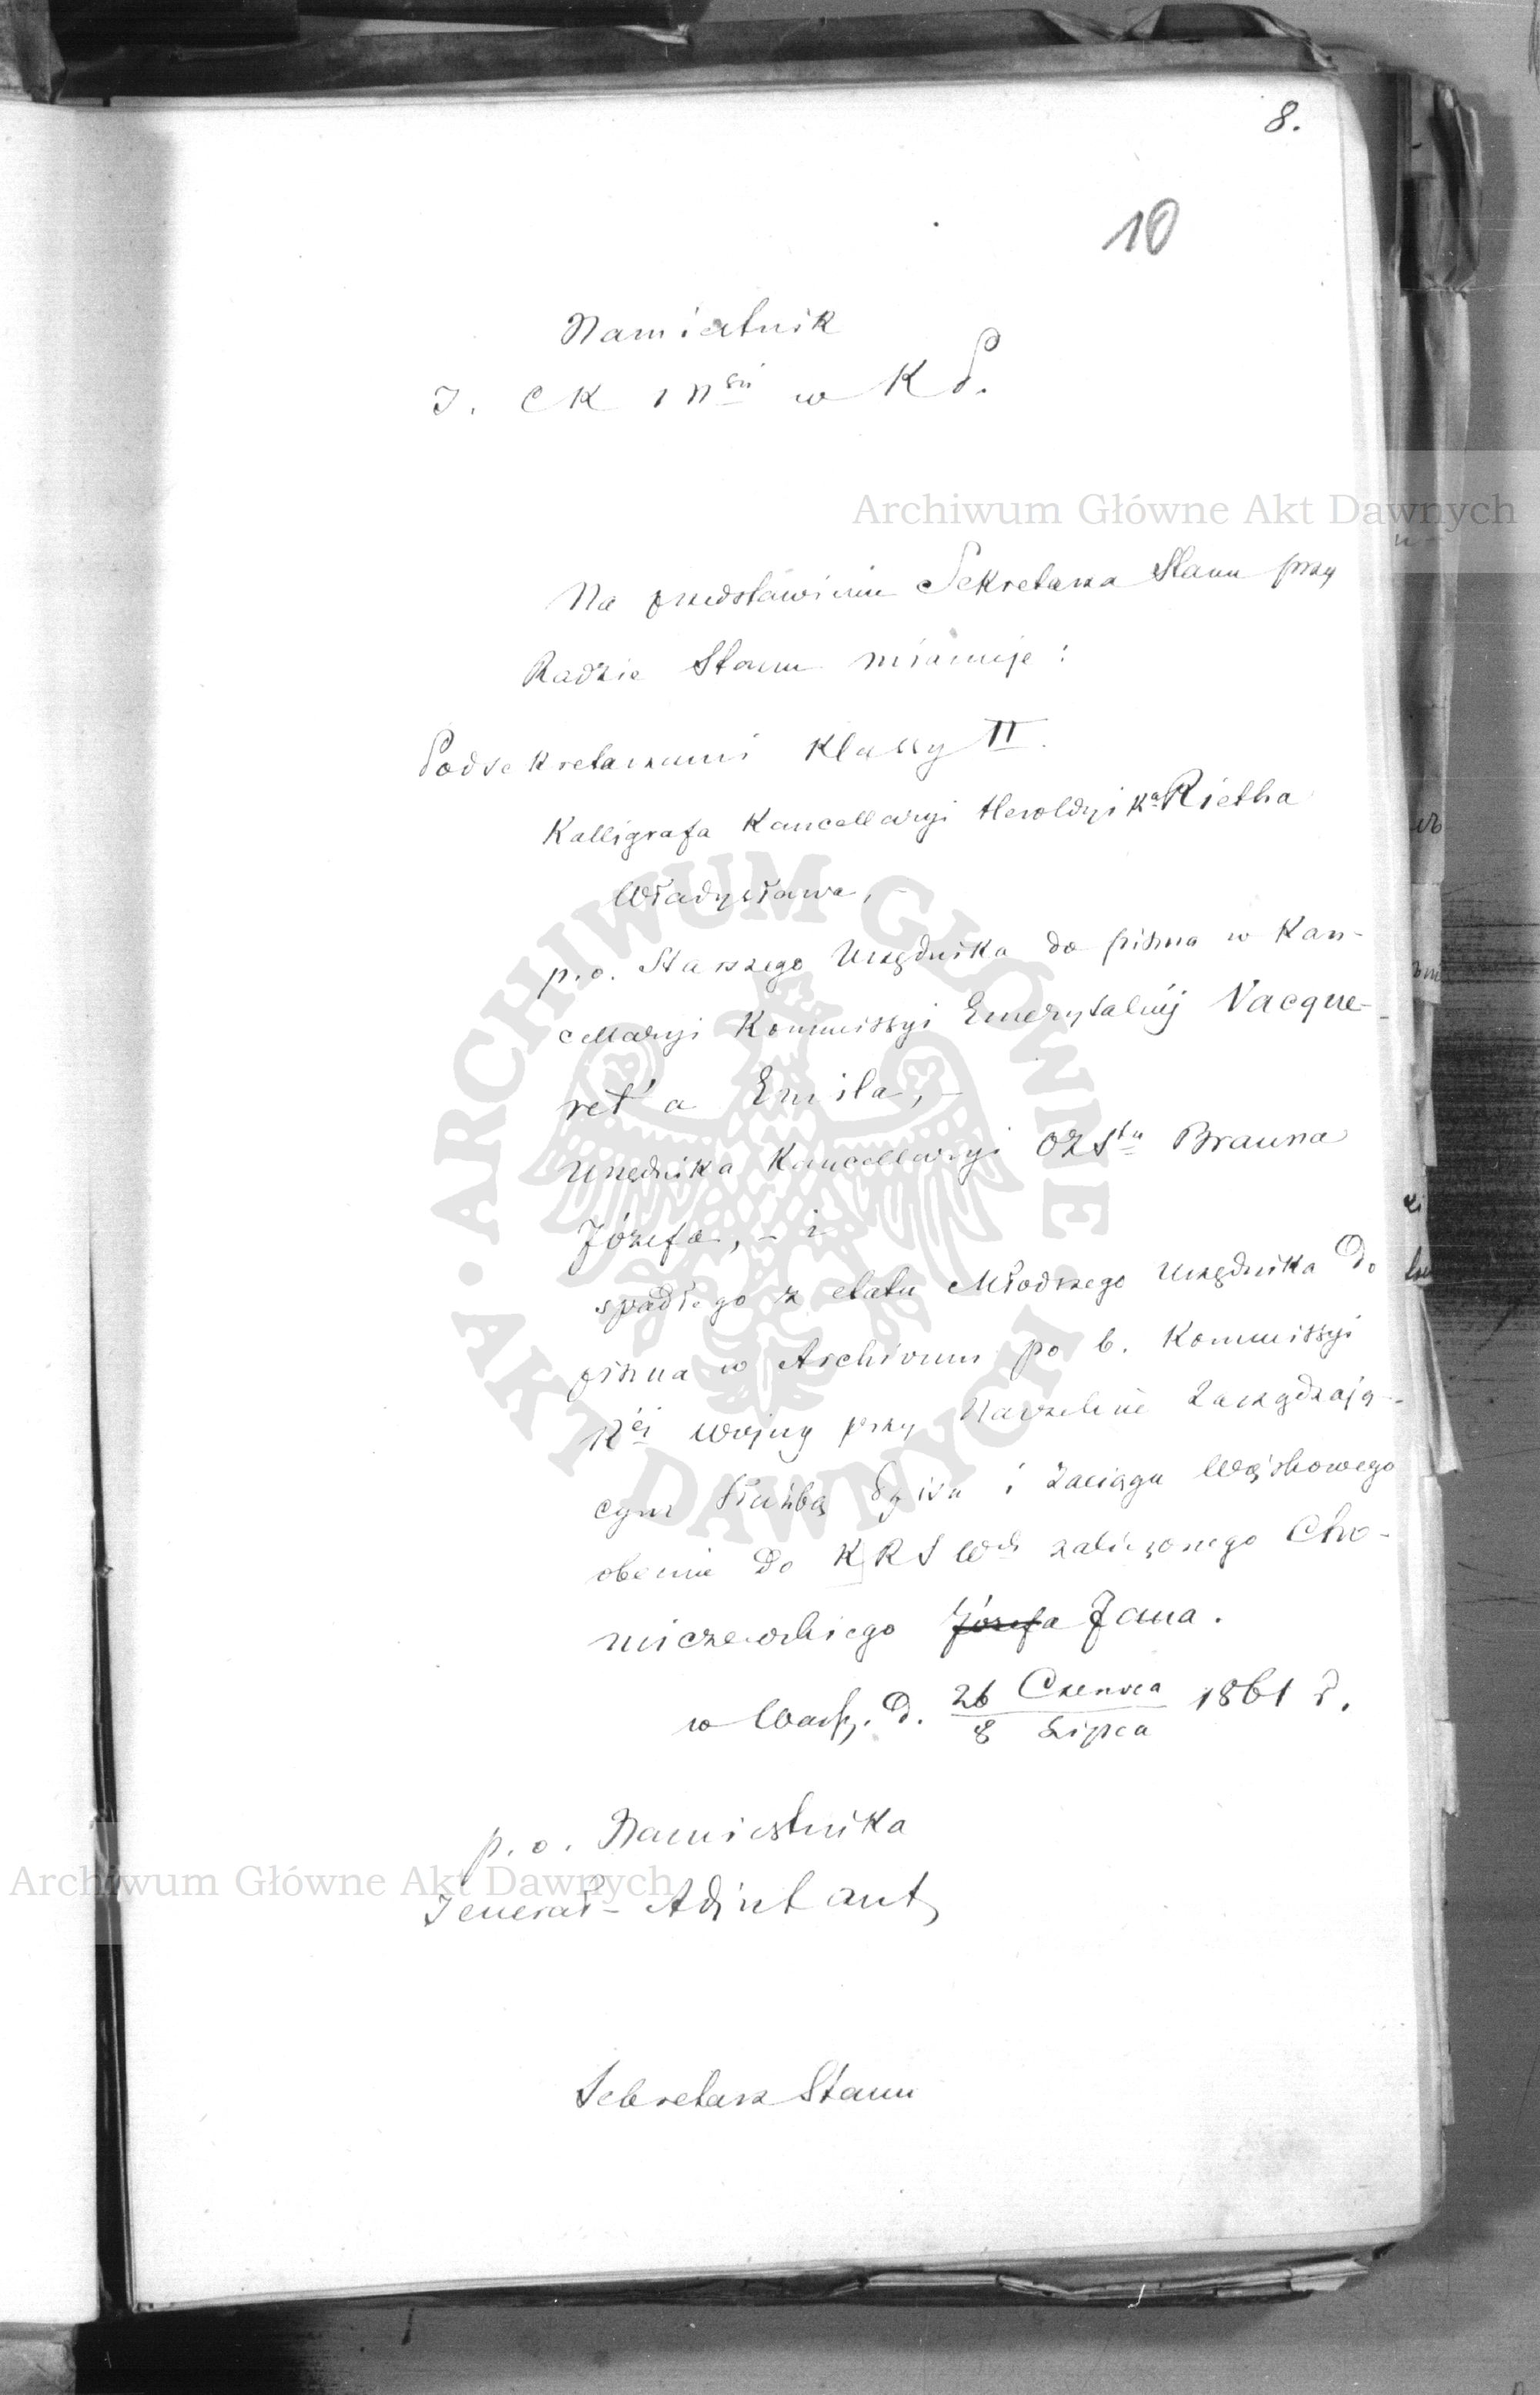 8.
10
Namiestnik
J. C K M ści w K P.
Archiwum Główne Akt Dawnych
Na przedstawienie Sekretarza Stanu przy
Radzie Stanu mianuje:
Podsekretarzami Klassy II.
Kalligrafa Kancellaryi Heroldyi Rietha
Władysława, -
p.o. Starszego Urzędnika do pisma w Kan-
cellaryi Kommissyi Emerytalnéj Vacque-
ret'a Emila, -
Urzędnika Kancellaryi Brauna
Józefa, - i
spadłego z etatu Młodszego Urzędnika do
pisma w Archiwum po b. Kommissyi
Réj Wojny przy Naczelniku Zarządzają-
cym Służbą Spisu i Zaciągu Wojskowego
obecnie do K R S W ch zaliczonego Cho-
miczewskiego Józefa Jana.
w Warsz. d. 26 Czerwca / 8 Lipca 1861 r.
p. o. Namiestnika
Archiwum Główne Akt Dawnych
Jenerał-Adjutant
Sekretarz Stanu
ARCHIWUM GŁÓWNE AKT DAWNYCH